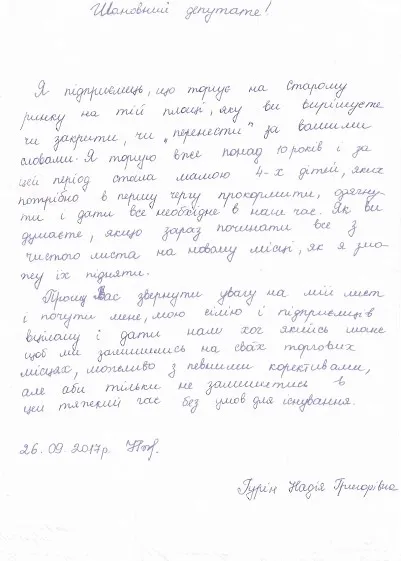 Шановний депутате!
Я підприємець, що торгує на Старому
ринку на тій площі, яку ви вирішуєте
чи закрити, чи „перенести" за вашими
словами. Я торгую вже понад 10 років і за
цей період стала мамою 4-х дітей, яких
потрібно в першу чергу прокормити, одягну-
ти і дати все необхідне в наш час. Як ви
думаєте, якщо зараз починати все з
чистого листа на новому місці, як я змо-
жу їх підняти.
Прошу Вас звернути увагу на мій лист
і почути мене, мою сім'ю і підприємців
вцілому і дати нам хоч якийсь шанс
щоб ми залишились на своїх торгових
місцях, можливо з певними корективами,
але аби тільки не залишитись в
цей тяжкий час без умов для існування.
26.09.2017р.
Гурін Надія Григорівна